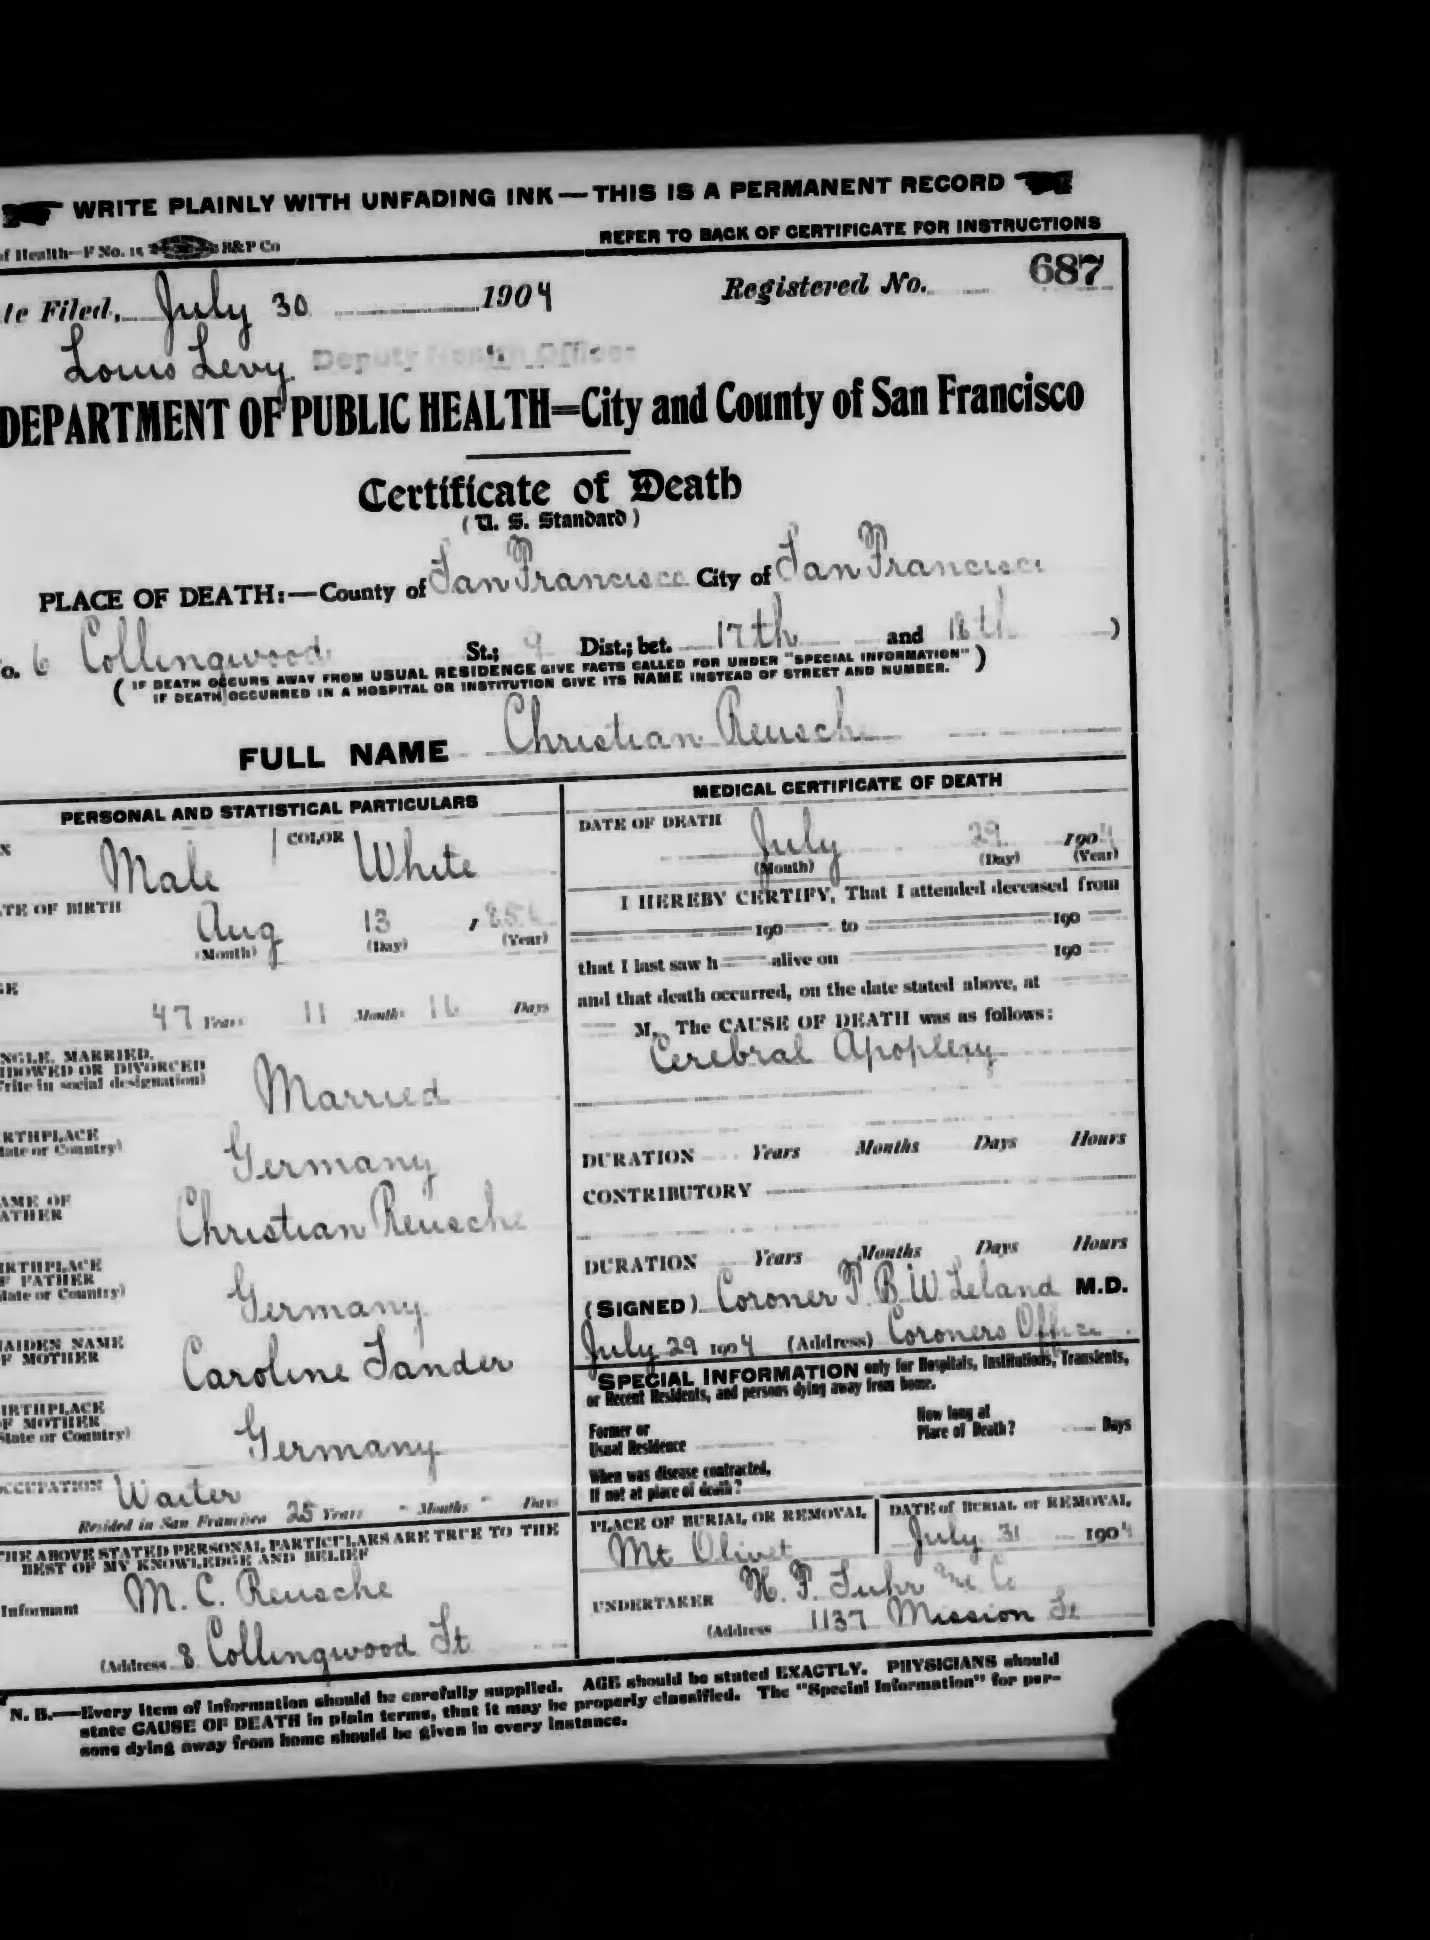 WRITE PLAINLY WITH UNFADING INK—THIS IS A PERMANENT RECORD
of Health—F No. 15 H&P Co
REFER TO BACK OF CERTIFICATE FOR INSTRUCTIONS
te Filed, July 30 1904 Registered No. 687
Louis Levy Deputy Health Officer
DEPARTMENT OF PUBLIC HEALTH=City and County of San Francisco
Certificate of Death
(U. S. Standard)
PLACE OF DEATH:—County of San Francisco City of San Francisco
o. 6 Collingwood St.; 9 Dist.; bet. 17th and 18th )
( IF DEATH OCCURS AWAY FROM USUAL RESIDENCE GIVE FACTS CALLED FOR UNDER "SPECIAL INFORMATION" )
IF DEATH OCCURRED IN A HOSPITAL OR INSTITUTION GIVE ITS NAME INSTEAD OF STREET AND NUMBER.
FULL NAME Christian Reusche
PERSONAL AND STATISTICAL PARTICULARS
X Male COLOR White
TE OF BIRTH
Aug 13 , 856
(Month) (Day) (Year)
GE
47 Years 11 Months 16 Days
NGLE, MARRIED,
IDOWED OR DIVORCED
rite in social designation)
Married
RTHPLACE
tate or Country)
Germany
AME OF
ATHER
Christian Reusche
IRTHPLACE
F FATHER
tate or Country)
Germany
AIDEN NAME
F MOTHER
Caroline Sander
IRTHPLACE
F MOTHER
tate or Country)
Germany
CCUPATION Waiter
Resided in San Francisco 25 Years " Months " Days
HE ABOVE STATED PERSONAL PARTICULARS ARE TRUE TO THE
BEST OF MY KNOWLEDGE AND BELIEF
Informant M. C. Reusche
(Address 8 Collingwood St
MEDICAL CERTIFICATE OF DEATH
DATE OF DEATH
July 29 1904
(Month) (Day) (Year)
I HEREBY CERTIFY, That I attended deceased from
190 to 190
that I last saw h alive on 190
and that death occurred, on the date stated above, at
M. The CAUSE OF DEATH was as follows:
Cerebral Apoplexy
DURATION Years Months Days Hours
CONTRIBUTORY
DURATION Years Months Days Hours
(SIGNED) Coroner T. B. W. Leland M.D.
July 29 1904 (Address) Coroners Office
SPECIAL INFORMATION only for Hospitals, Institutions, Transients,
or Recent Residents, and persons dying away from home.
Former or
Usual Residence
How long at
Place of Death? Days
When was disease contracted,
If not at place of death?
PLACE OF BURIAL OR REMOVAL
Mt Olivet
DATE of BURIAL or REMOVAL
July 31 1904
UNDERTAKER H. F. Suhr and Co
(Address 1137 Mission St
N. B.—Every item of information should be carefully supplied. AGE should be stated EXACTLY. PHYSICIANS should
state CAUSE OF DEATH in plain terms, that it may be properly classified. The "Special Information" for per-
sons dying away from home should be given in every instance.